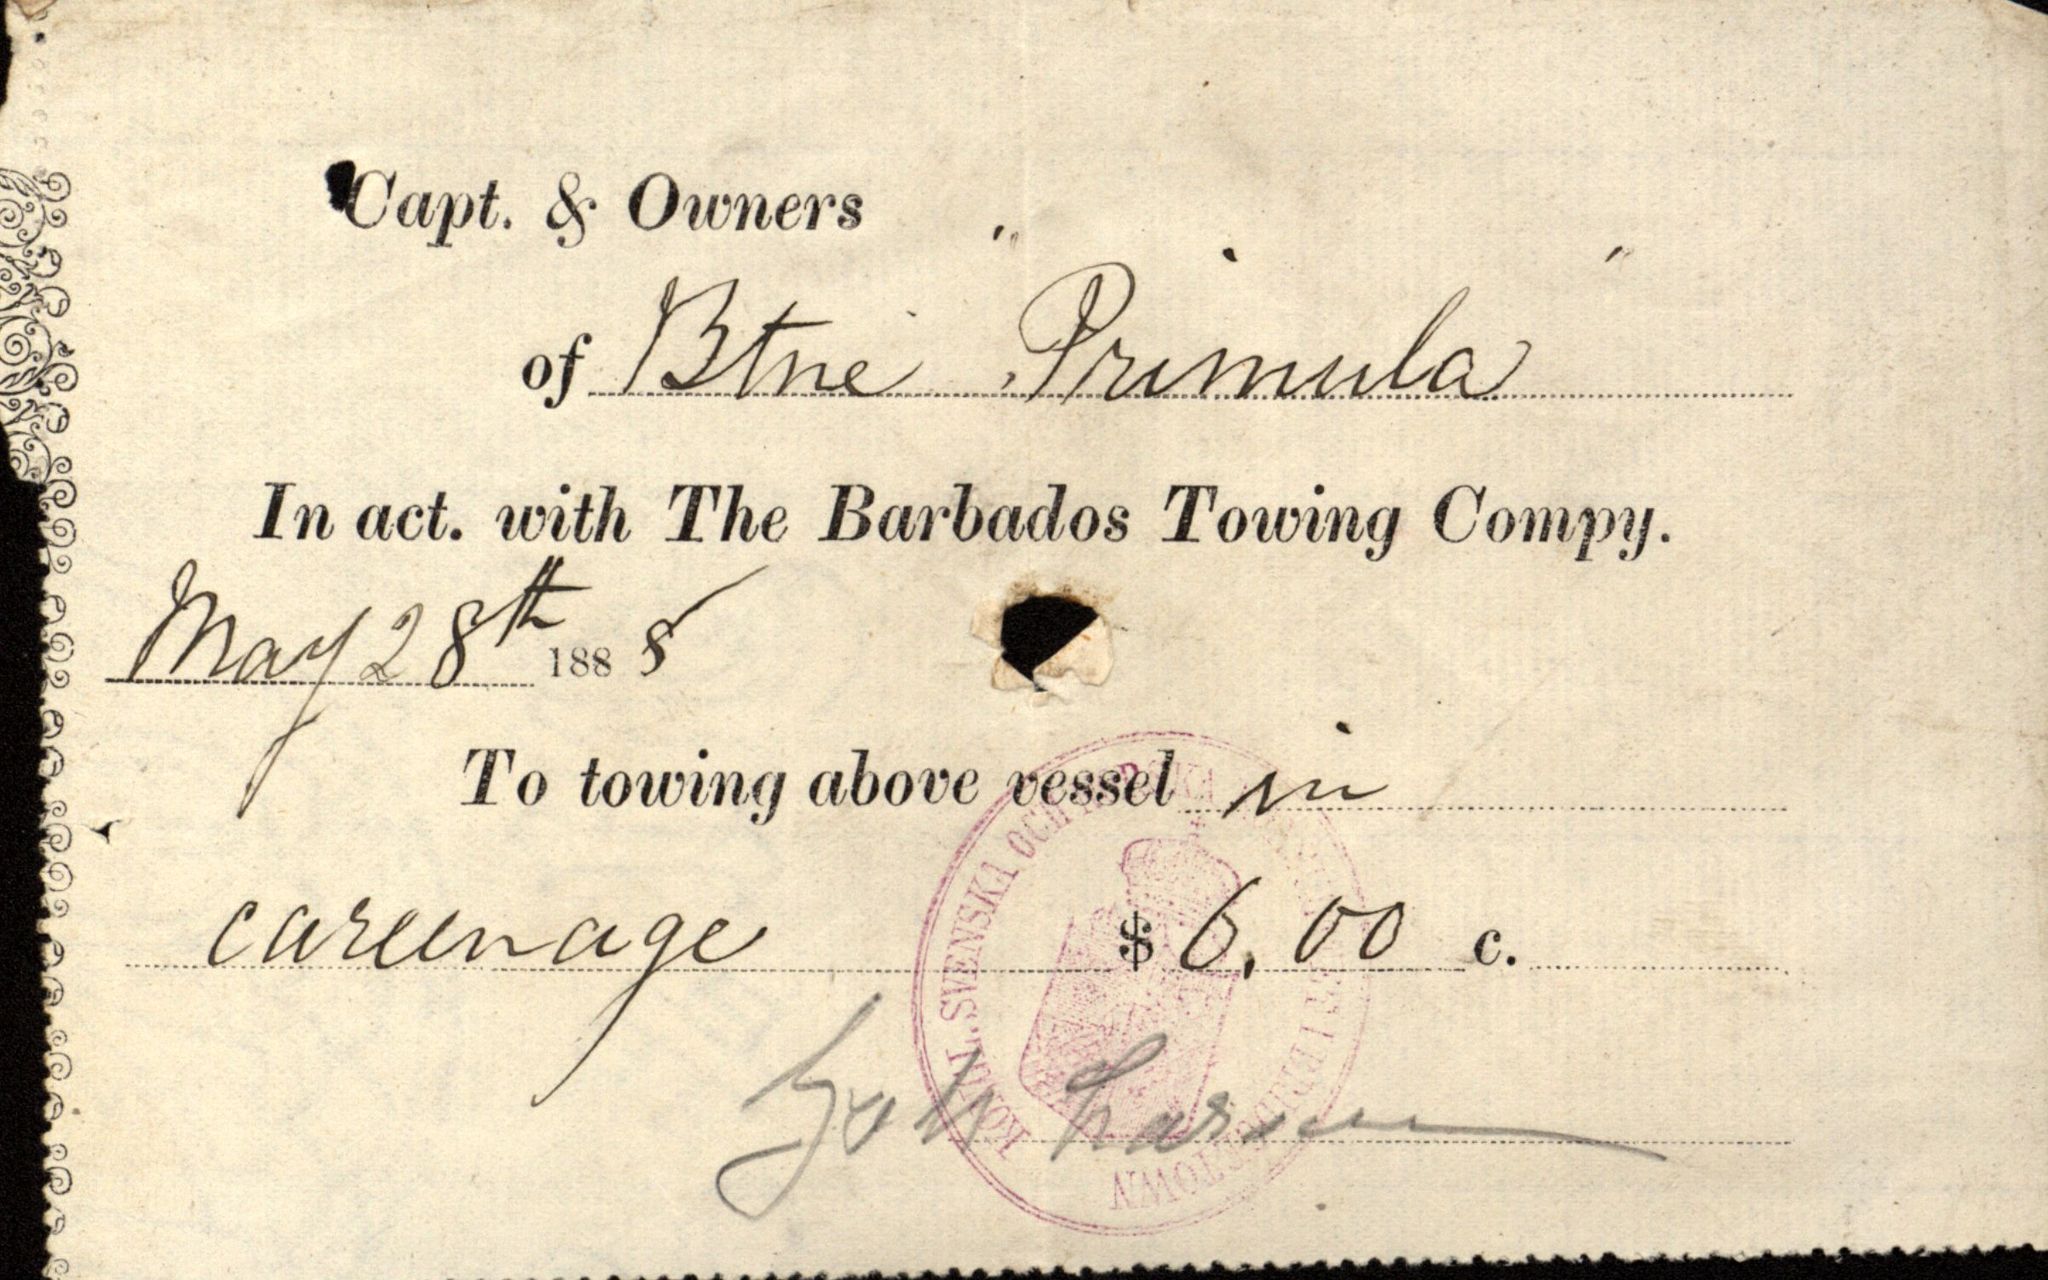 Capt. & Owners
of Btne "Primula"
In act. with The Barbados Towing Compy.
May 28th 1888
To towing above vessel in
careenage $ 6.00 c.
Larsen
KONGL. SVENSKA OCH NORSKA I BRIDGETOWN